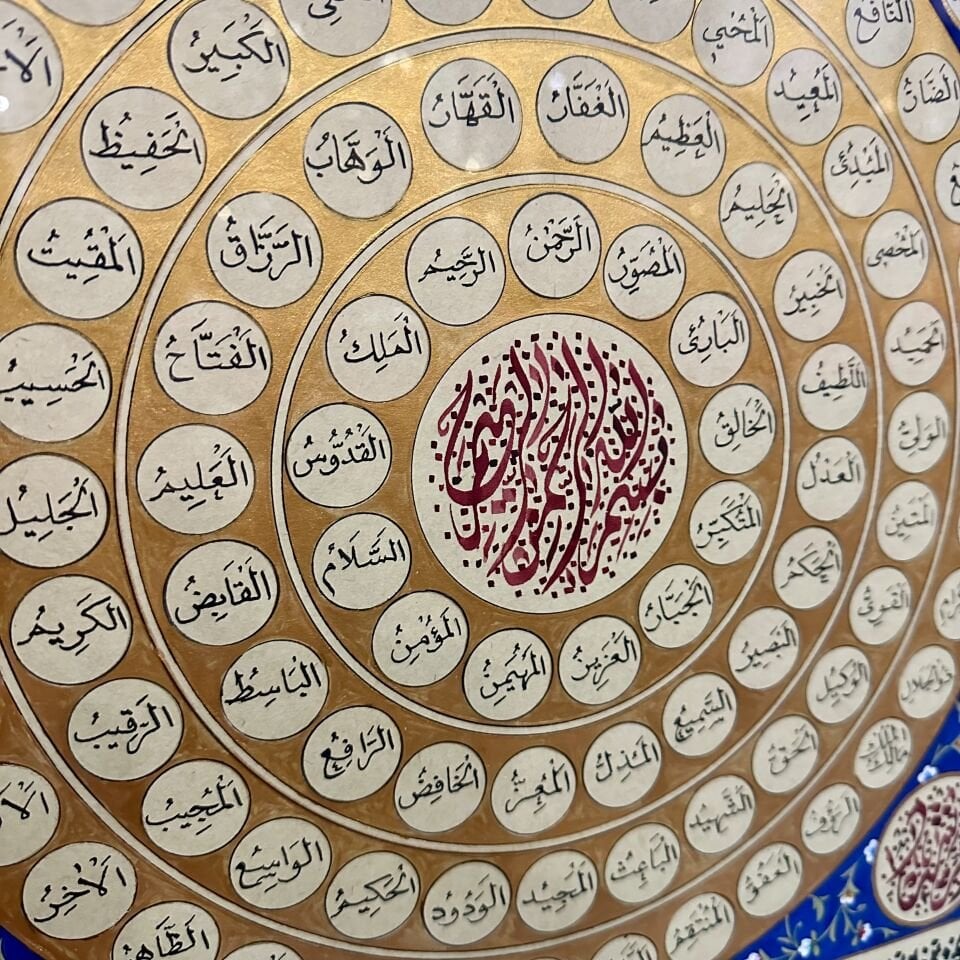 بِسْمِ اللهِ الرَّحْمٰنِ الرَّحِيمِ
الرَّحْمٰنُ
الرَّحِيمُ
الْمَلِكُ
الْقُدُّوسُ
السَّلَامُ
الْمُؤْمِنُ
الْمُهَيْمِنُ
الْعَزِيزُ
الْجَبَّارُ
الْمُتَكَبِّرُ
الْخَالِقُ
الْبَارِئُ
الْمُصَوِّرُ
الْغَفَّارُ
الْقَهَّارُ
الْوَهَّابُ
الرَّزَّاقُ
الْفَتَّاحُ
الْعَلِيمُ
الْقَابِضُ
الْبَاسِطُ
الرَّافِعُ
الْخَافِضُ
الْمُعِزُّ
الْمُذِلُّ
السَّمِيعُ
الْبَصِيرُ
الْحَكَمُ
الْعَدْلُ
اللَّطِيفُ
الْخَبِيرُ
الْحَلِيمُ
الْعَظِيمُ
الْكَبِيرُ
الْحَفِيظُ
الْمُقِيتُ
الْحَسِيبُ
الْجَلِيلُ
الْكَرِيمُ
الرَّقِيبُ
الْمُجِيبُ
الْوَاسِعُ
الْحَكِيمُ
الْوَدُودُ
الْمَجِيدُ
الْبَاعِثُ
الشَّهِيدُ
الْحَقُّ
الْوَكِيلُ
الْقَوِيُّ
الْمَتِينُ
الْوَلِيُّ
الْحَمِيدُ
الْمُحْصِي
الْمُبْدِئُ
الْمُعِيدُ
الْمُحْيِي
الْآخِرُ
الظَّاهِرُ
الْمُنْتَقِمُ
الْعَفُوُّ
الرَّؤُفُ
مَالِكُ الْمُلْكِ
ذُو الْجَلَالِ
الضَّارُّ
النَّافِعُ